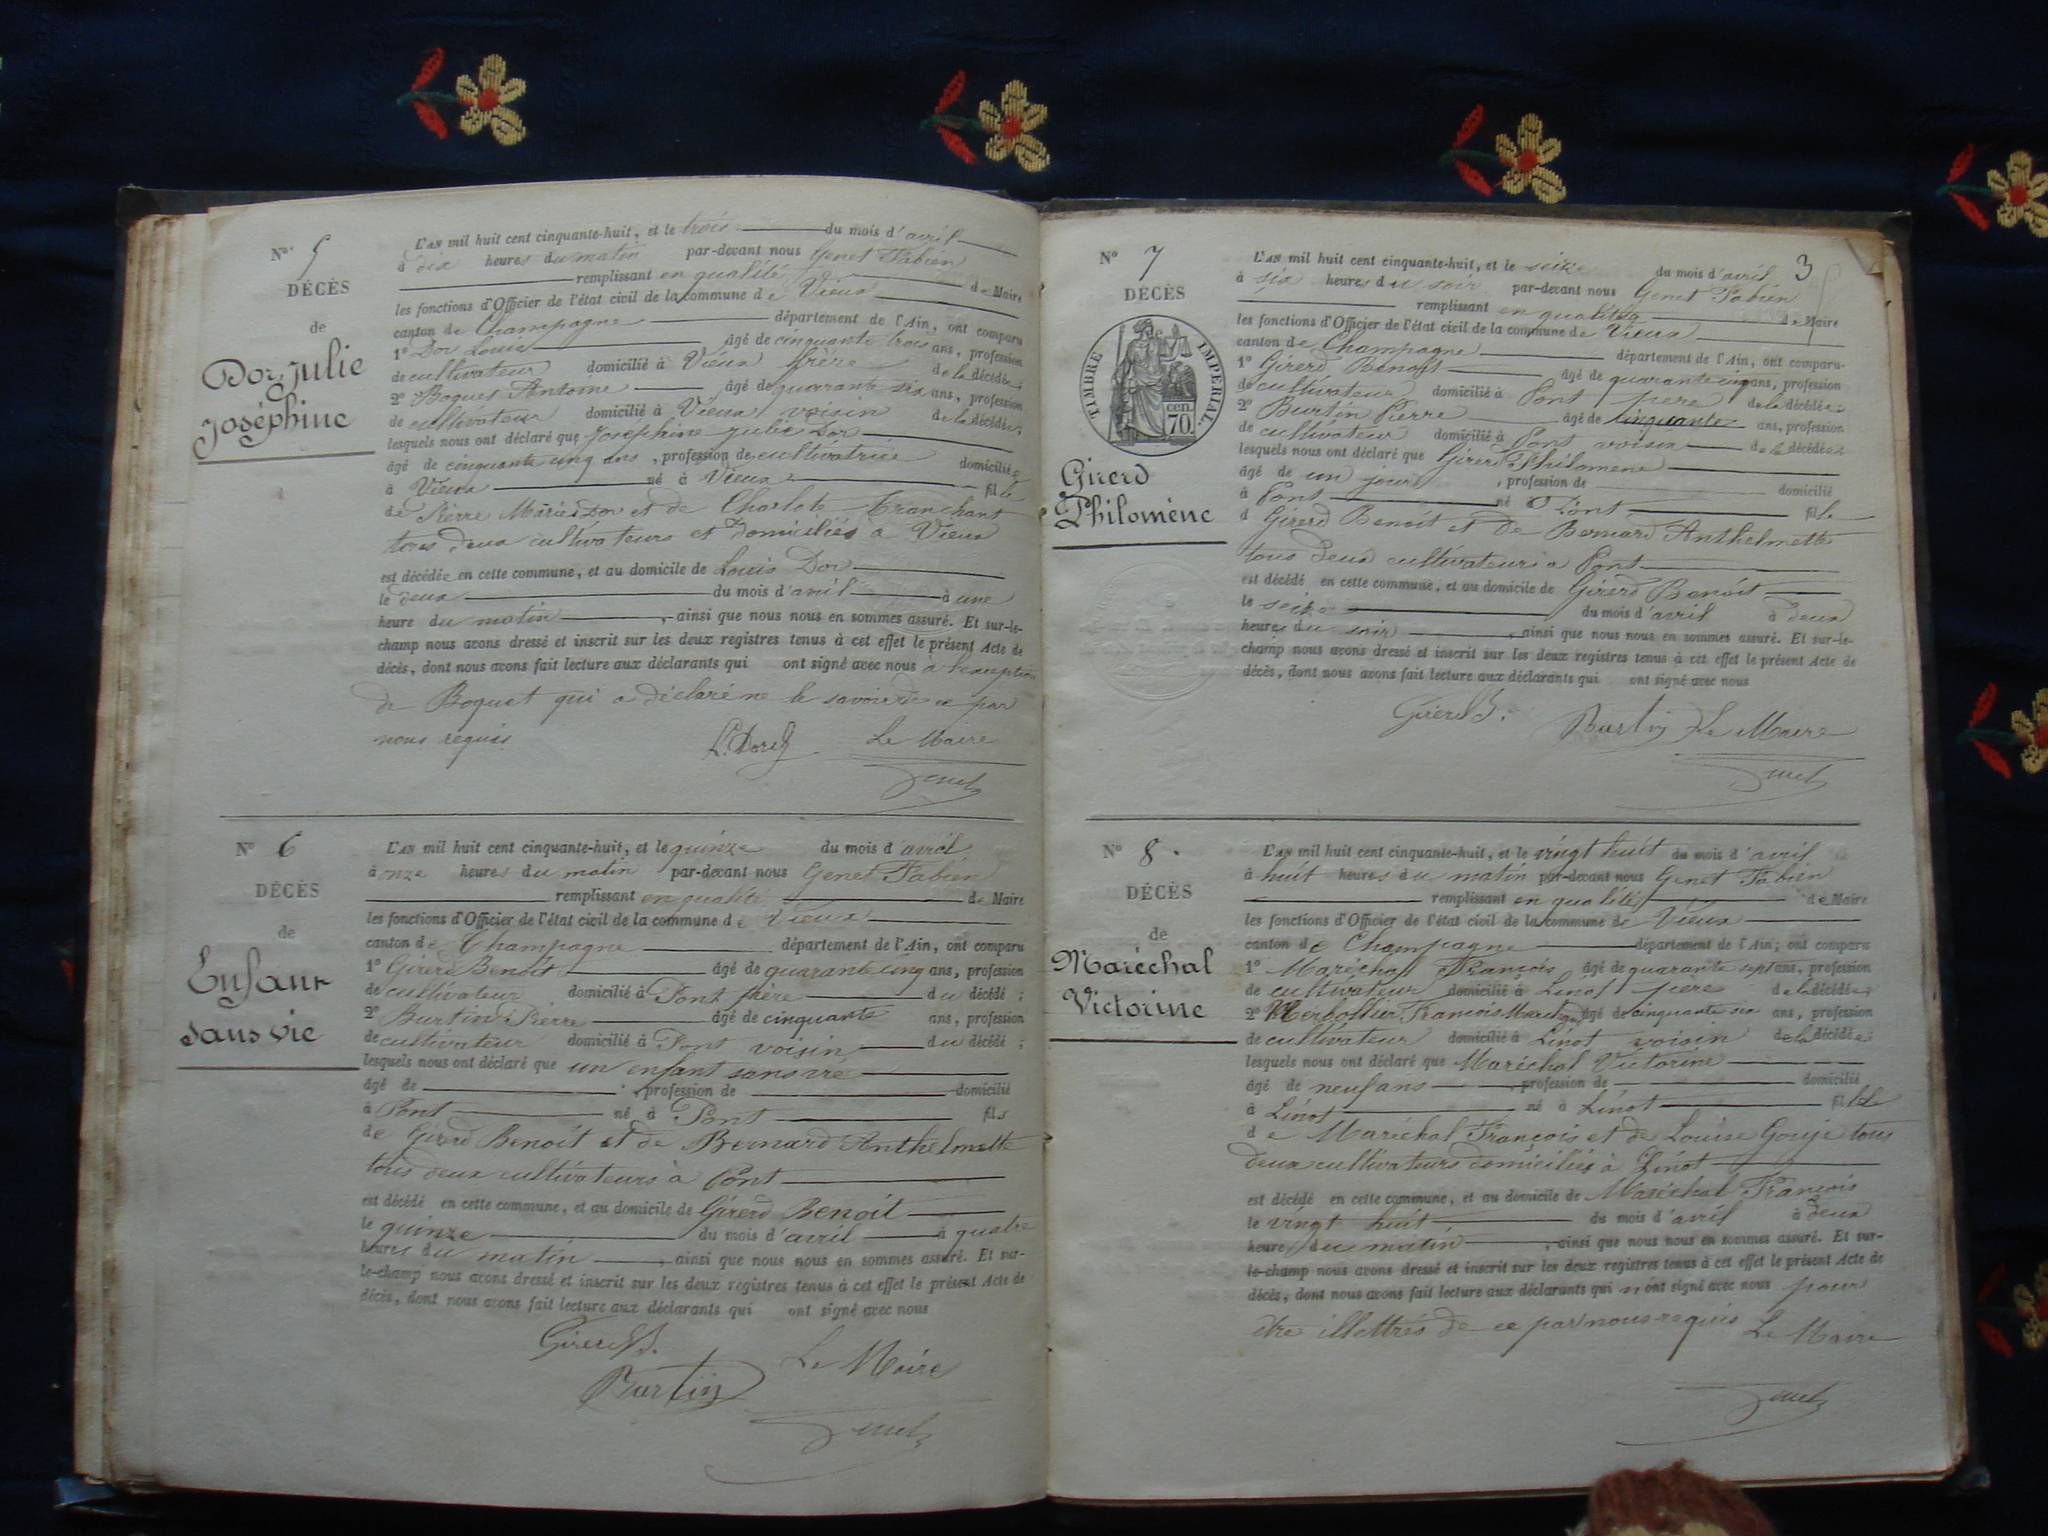 N° 5
DÉCÈS
de
Dor, Julie
Joséphine
L'AN mil huit cent cinquante-huit, et le trois du mois d'avril
à dix heures du matin par-devant nous Genet Fabien
remplissant en qualité de Maire
les fonctions d'Officier de l'état civil de la commune de Vieux
canton de Champagne département de l'Ain, ont comparu
1° Dor Louis âgé de cinquante trois ans, profession
de cultivateur domicilié à Vieux frère de la décédée;
2° Boquet Antoine âgé de quarante six ans, profession
de cultivateur domicilié à Vieux voisin de la décédée;
lesquels nous ont déclaré que Joséphine Julie Dor
âgé de cinquante cinq ans, profession de cultivatrice domiciliée
à Vieux né à Vieux fille
de Pierre Marie Dor et de Charlote Tranchant
tous deux cultivateurs et domiciliés à Vieux
est décédée en cette commune, et au domicile de Louis Dor
le deux du mois d'avril à une
heure du matin, ainsi que nous nous en sommes assuré. Et sur-le-
champ nous avons dressé et inscrit sur les deux registres tenus à cet effet le présent Acte de
décès, dont nous avons fait lecture aux déclarants qui ont signé avec nous à l'exception
de Boquet qui a déclaré ne le savoir de ce par
nous requis
L. Dor Le Maire
Genet
N° 6
DÉCÈS
de
Enfant
sans vie
L'AN mil huit cent cinquante-huit, et le quinze du mois d'avril
à onze heures du matin par-devant nous Genet Fabien
remplissant en qualité de Maire
les fonctions d'Officier de l'état civil de la commune de Vieux
canton de Champagne département de l'Ain, ont comparu
1° Girerd Benoît âgé de quarante cinq ans, profession
de cultivateur domicilié à Pont père du décédé;
2° Burtin Pierre âgé de cinquante ans, profession
de cultivateur domicilié à Pont voisin du décédé;
lesquels nous ont déclaré que un enfant sans vie
âgé de , profession de domicilié
à Pont né à Pont fils
de Girerd Benoît et de Bernard Anthelmette
tous deux cultivateurs à Pont
est décédé en cette commune, et au domicile de Girerd Benoît
le quinze du mois d'avril à quatre
heures du matin, ainsi que nous nous en sommes assuré. Et sur-
le-champ nous avons dressé et inscrit sur les deux registres tenus à cet effet le présent Acte de
décès, dont nous avons fait lecture aux déclarants qui ont signé avec nous
Girerd B.
Burtin Le Maire
Genet
3
N° 7
DÉCÈS
de
TIMBRE IMPERIAL.
cen.
70.
Girerd
Philomène
L'AN mil huit cent cinquante-huit, et le seize du mois d'avril
à six heures du soir par-devant nous Genet Fabien
remplissant en qualité de Maire
les fonctions d'Officier de l'état civil de la commune de Vieux
canton de Champagne département de l'Ain, ont comparu-
1° Girerd Benoît âgé de quarante cinq ans, profession
de cultivateur domicilié à Pont père de la décédée;
2° Burtin Pierre âgé de cinquante ans, profession
de cultivateur domicilié à Pont voisin de la décédée;
lesquels nous ont déclaré que Girerd Philomène
âgé de un jour, profession de domicilié
à Pont né à Pont fille
d Girerd Benoît et de Bernard Anthelmette
tous deux cultivateurs à Pont
est décédé en cette commune, et au domicile de Girerd Benoît
le seize du mois d'avril à deux
heures du soir, ainsi que nous nous en sommes assuré. Et sur-le-
champ nous avons dressé et inscrit sur les deux registres tenus à cet effet le présent Acte de
décès, dont nous avons fait lecture aux déclarants qui ont signé avec nous
Girerd B. Burtin Le Maire
Genet
N° 8.
DÉCÈS
de
Maréchal
Victorine
L'AN mil huit cent cinquante-huit, et le vingt huit du mois d'avril
à huit heures du matin par-devant nous Genet Fabien
remplissant en qualité de Maire
les fonctions d'Officier de l'état civil de la commune de Vieux
canton de Champagne département de l'Ain, ont comparu
1° Maréchal François âgé de quarante sept ans, profession
de cultivateur domicilié à Linot père de la décédée;
2° Merbollier François âgé de cinquante six ans, profession
de cultivateur domicilié à Linot voisin de la décédée;
lesquels nous ont déclaré que Maréchal Victorine
âgé de neuf ans, profession de domicilié
à Linot né à Linot fille
de Maréchal François et de Louise Gouje tous
deux cultivateurs domiciliés à Linot
est décédé en cette commune, et au domicile de Maréchal François
le vingt huit du mois d'avril à deux
heure du matin, ainsi que nous nous en sommes assuré. Et sur-
le-champ nous avons dressé et inscrit sur les deux registres tenus à cet effet le présent Acte de
décès, dont nous avons fait lecture aux déclarants qui n'ont signé avec nous pour
être illettrés de ce par nous requis Le Maire
Genet